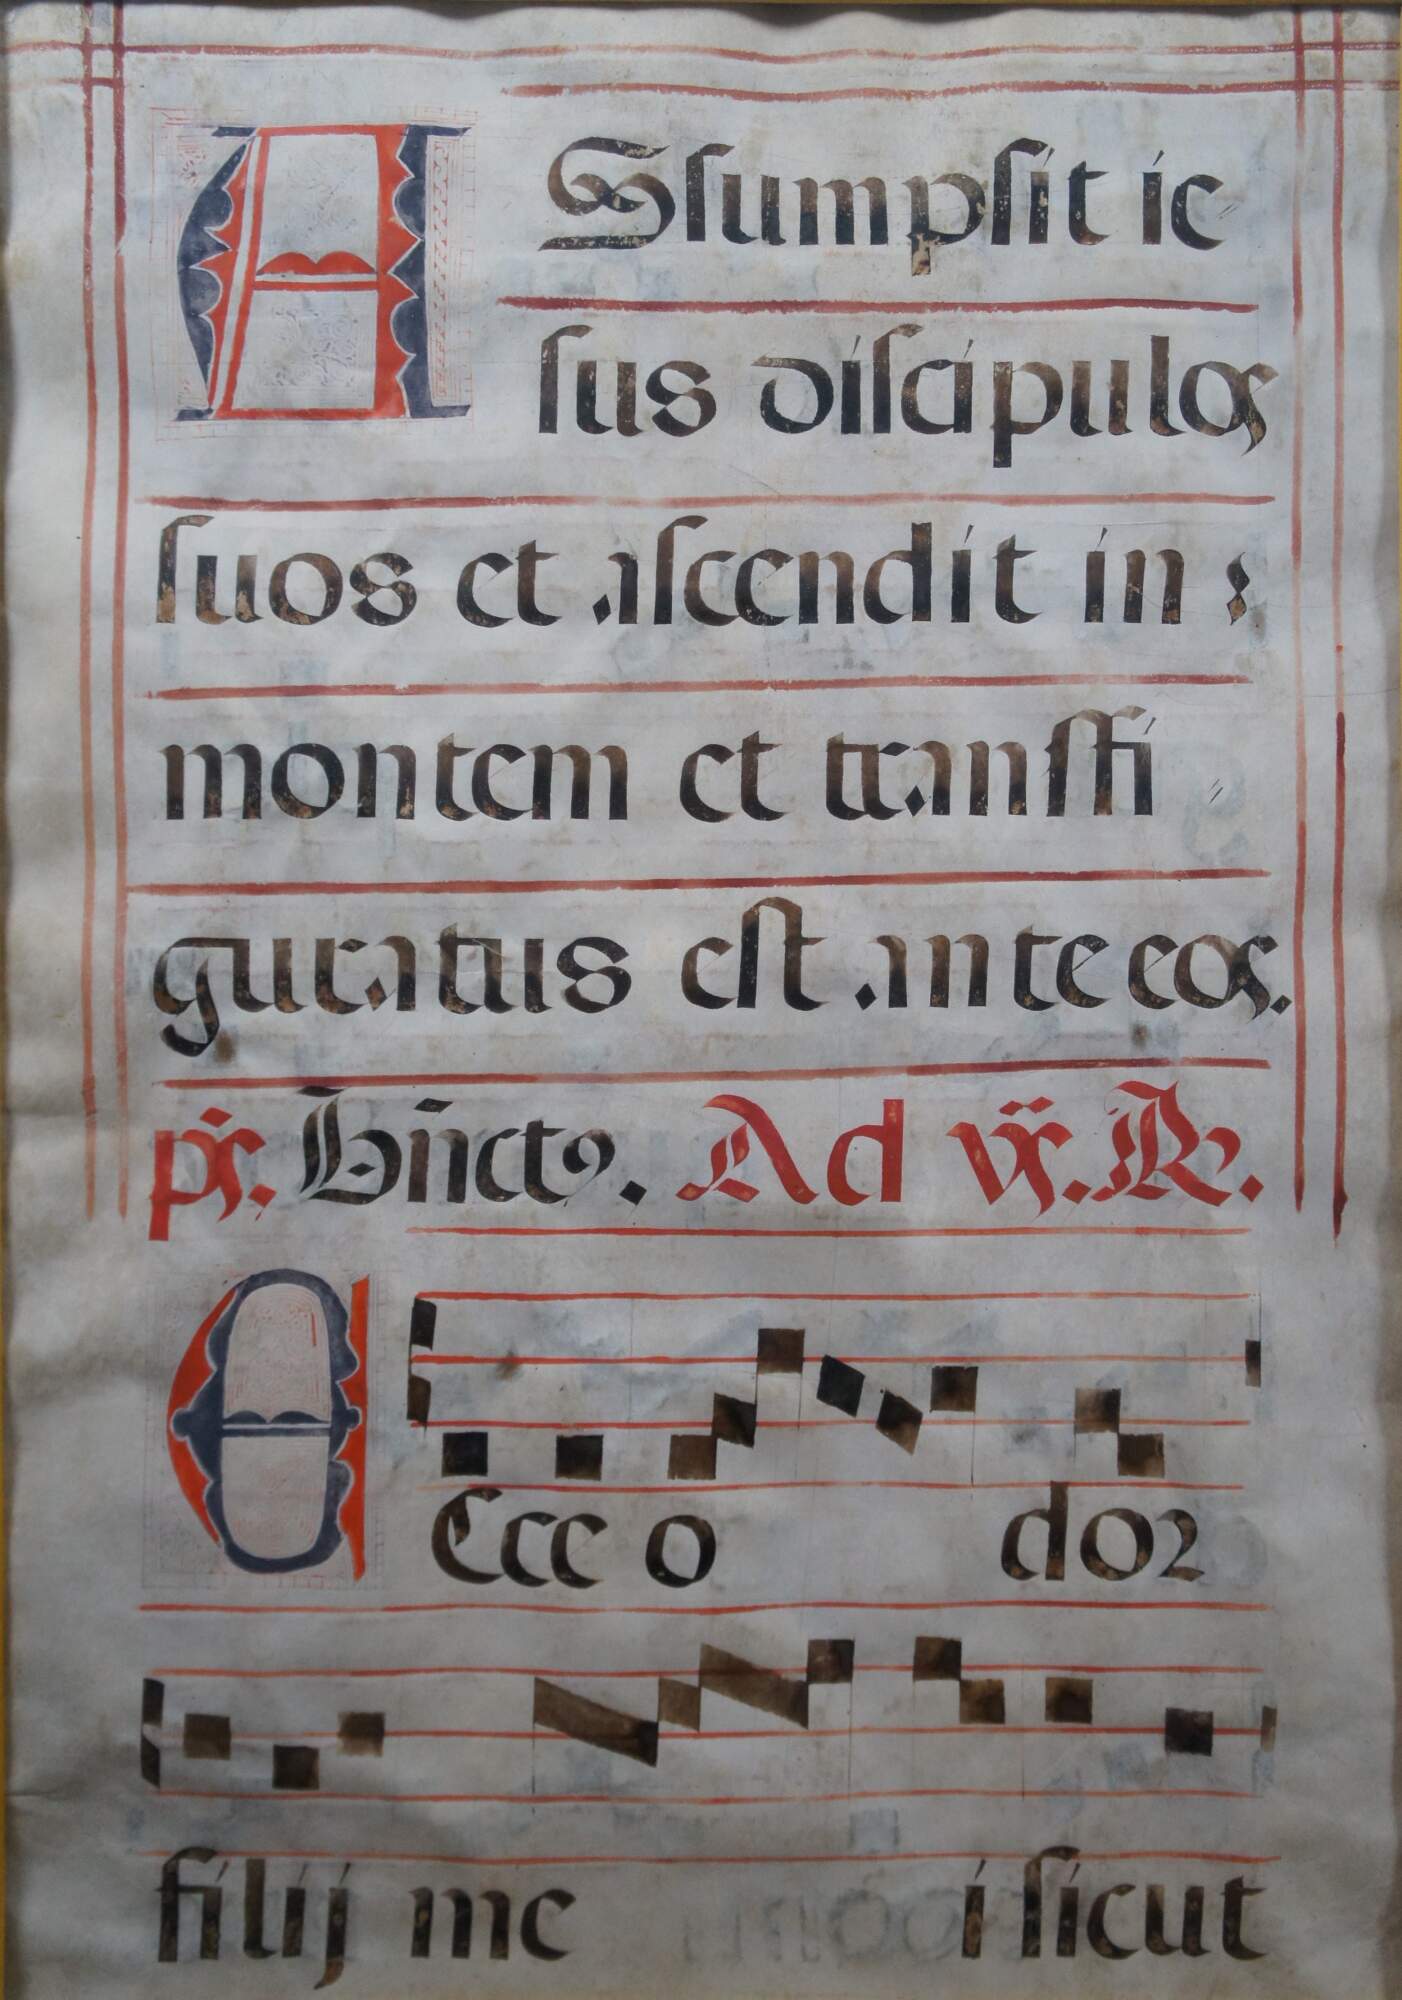 ASsumpsit ie
sus discipulos
suos et ascendit in :
montem et transfi
guratus est ante eos.
ps. Bñctꝰ. Ad vs. R.
EEcce odor
filij mei sicut